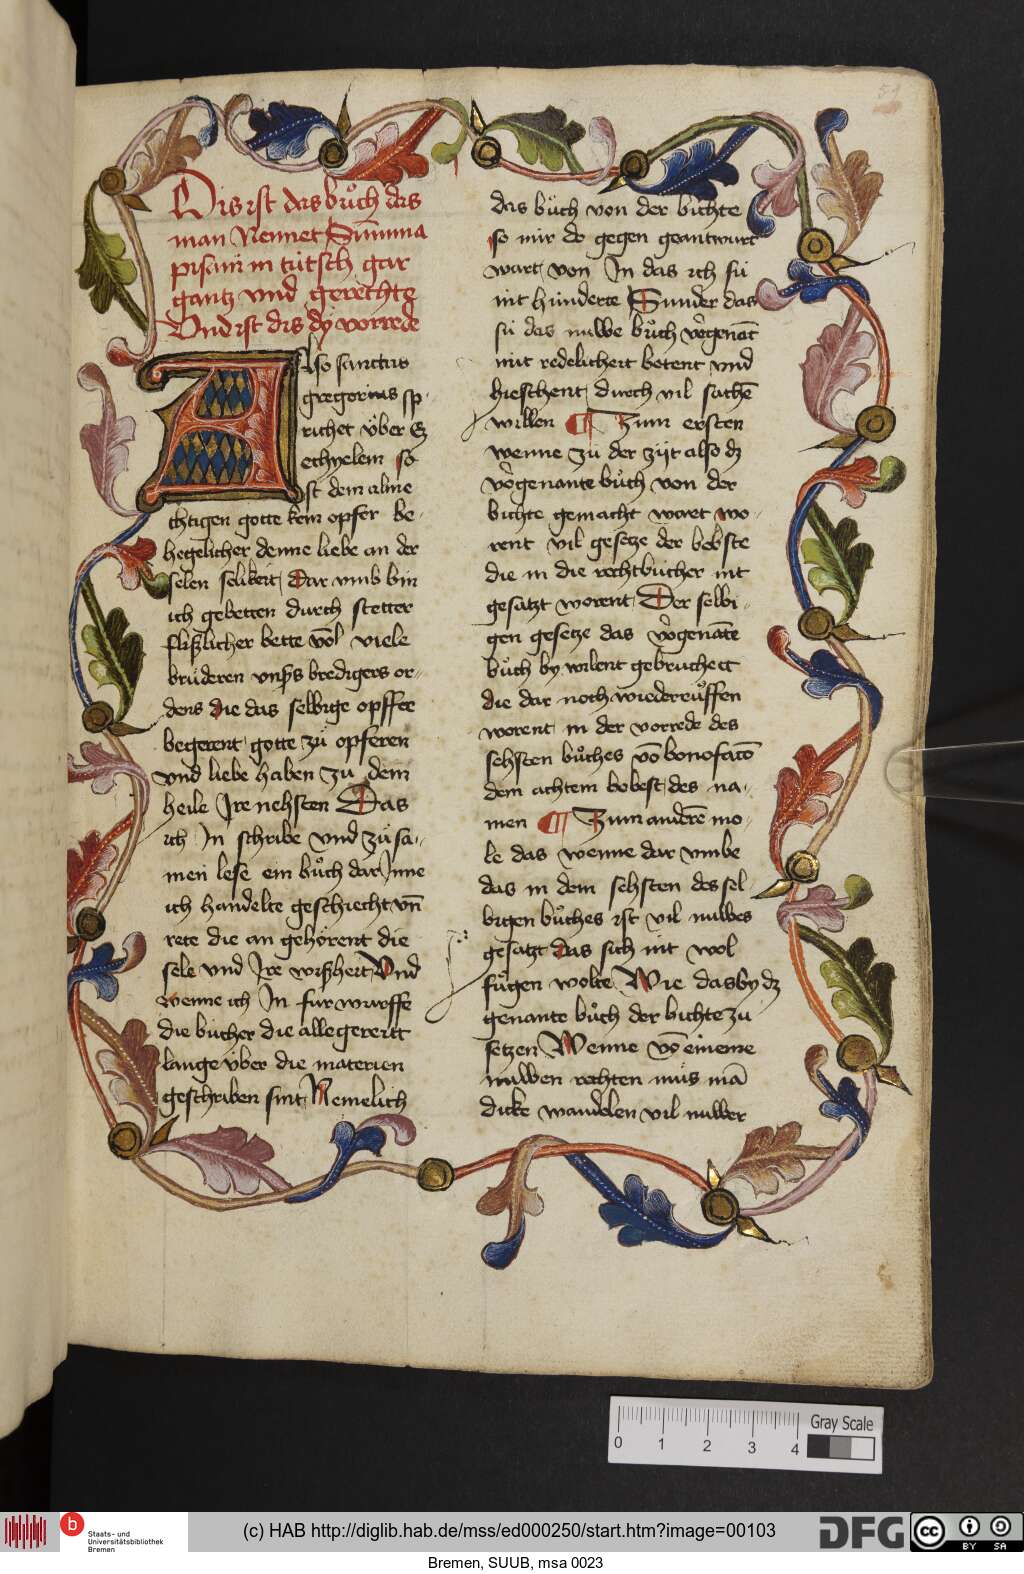 51
Dis ist das bůch das
man Nennet Summa
pisani in tütsch gar
gantz vnd gerechte
Vnd ist dis dy vorrede
Also sanctus
gregorius sp-
richet v̈ber E
zechyelem so
ist dem alme
chtigen gotte kein opfer be-
hegelicher denne liebe an der
selen selikeit, Dar vmb bin
ich gebetten durch stetter
flißlicher bette võl viele
brüderen vnsers bredigers or-
dens die das selbige opffer
begerent gotte zů opferen
vnd liebe haben zu dem
heile Jre nehsten Das
ich Jn schribe vnd zů sa-
men lese ein bůch dar Jnne
ich handelte geschiecht vñ
rete die an gehörent die
sele vnd Jre wißheit Vnd
wenne ich Jn für wurffe
die bücher die alle gereitt
lange v̈ber die materien
geschriben sint, Nemelich
das bůch von der bichte
so mir do gegen geantwurt
wart, von Jn das ich sü
nit hünderte Sunder das
sü das nuwe bůch vorgenãt
mit redelicheit betent vnd
hieschent, durch vil sachẽ
willen ¶ Zum ersten
wenne zů der zijt also dz
vorgenante bůch von der
bichte gemacht wart wo-
rent vil gesetze der bebste
die in die rechtbücher nit
gesatzt worent, Der selbi-
gen gesetze das vorgenãte
bůch by wilent gebruchett
die dar noch wiederrůffen
worent in der vorrede des
sehsten bůches võ bonofacio
dem achtem bobest, des na-
men ¶ Zum anderẽ mo-
le das wenne dar vmbe
das in dem sehsten des sel-
bigen bůches ist vil nuwes
gesatzt das sich nit wol
fůgen wolte, Wie das by dz
genante bůch der bichte zu
setzen Wenne võ eineme
nuwen rechten můs mã
dicke wandelen vil nuwer
0 1 2 3 4
Gray Scale
b Staats- und
Universitätsbibliothek
Bremen
(c) HAB http://diglib.hab.de/mss/ed000250/start.htm?image=00103
DFG
cc BY SA
Bremen, SUUB, msa 0023